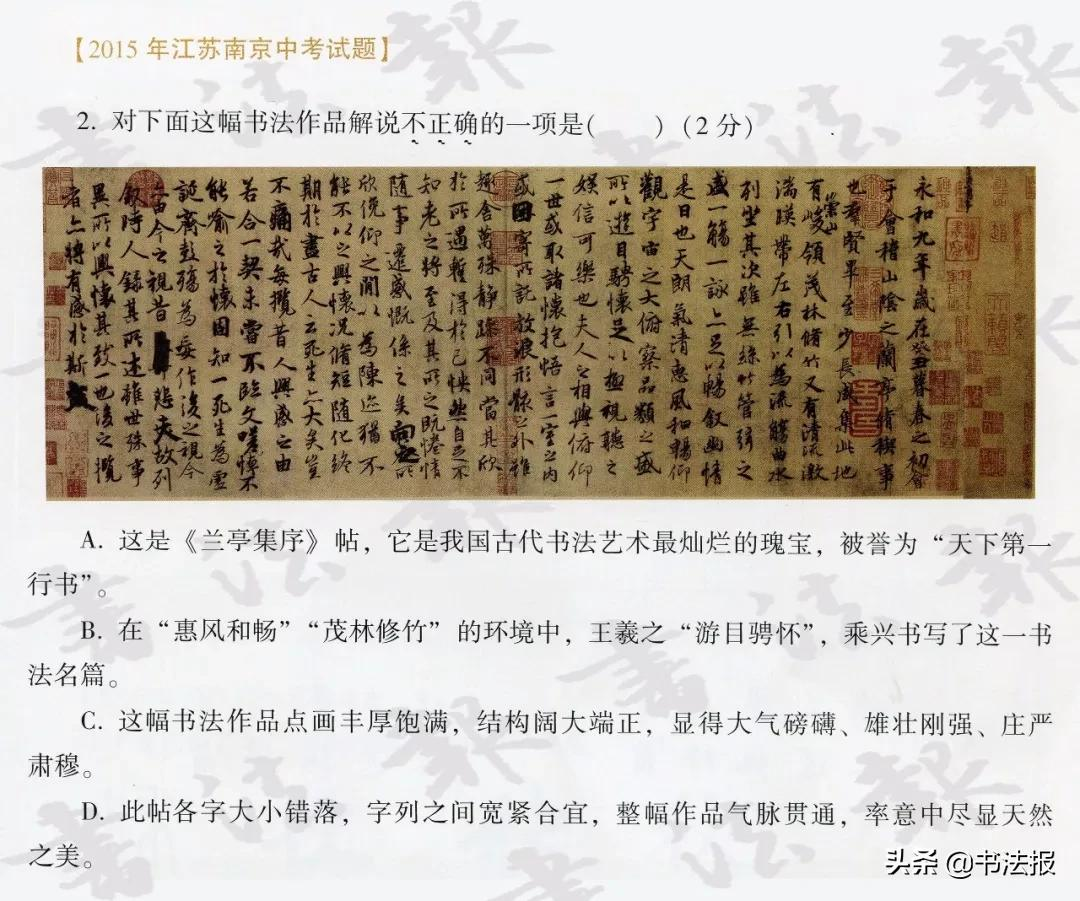 【2015 年江苏南京中考试题】
2. 对下面这幅书法作品解说不正确的一项是(　　)(2 分)
永和九年歲在癸丑暮春之初會
于會稽山陰之蘭亭脩稧事
也羣賢畢至少長咸集此地
有崇山峻領茂林脩竹又有清流激
湍暎帶左右引以為流觴曲水
列坐其次雖無絲竹管弦之
盛一觴一詠亦足以暢敘幽情
是日也天朗氣清惠風和暢仰
觀宇宙之大俯察品類之盛
所以遊目騁懷足以極視聽之
娛信可樂也夫人之相與俯仰
一世或取諸懷抱悟言一室之內
或因寄所託放浪形骸之外雖
趣舍萬殊靜躁不同當其欣
於所遇暫得於己怏然自足不
知老之將至及其所之既惓情
隨事遷感慨係之矣向之所
欣俛仰之閒以為陳迹猶不
能不以之興懷況脩短隨化終
期於盡古人云死生亦大矣豈
不痛哉每攬昔人興感之由
若合一契未嘗不臨文嗟悼不
能喻之於懷固知一死生為虛
誕齊彭殤為妄作後之視今
亦由今之視昔悲夫故列
敘時人錄其所述雖世殊事
異所以興懷其致一也後之攬
者亦將有感於斯文
A. 这是《兰亭集序》帖，它是我国古代书法艺术最灿烂的瑰宝，被誉为“天下第一
行书”。
B. 在“惠风和畅”“茂林修竹”的环境中，王羲之“游目骋怀”，乘兴书写了这一书
法名篇。
C. 这幅书法作品点画丰厚饱满，结构阔大端正，显得大气磅礴、雄壮刚强、庄严
肃穆。
D. 此帖各字大小错落，字列之间宽紧合宜，整幅作品气脉贯通，率意中尽显天然
之美。
头条 @书法报